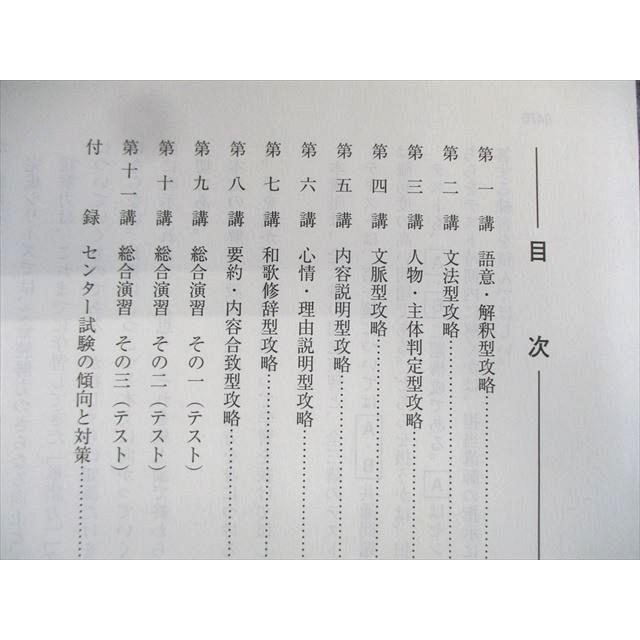 目次
第一講 語意・解釈型攻略
第二講 文法型攻略
第三講 人物・主体判定型攻略
第四講 文脈型攻略
第五講 内容説明型攻略
第六講 心情・理由説明型攻略
第七講 和歌修辞型攻略
第八講 要約・内容合致型攻略
第九講 総合演習 その一（テスト）
第十講 総合演習 その二（テスト）
第十一講 総合演習 その三（テスト）
付録 センター試験の傾向と対策